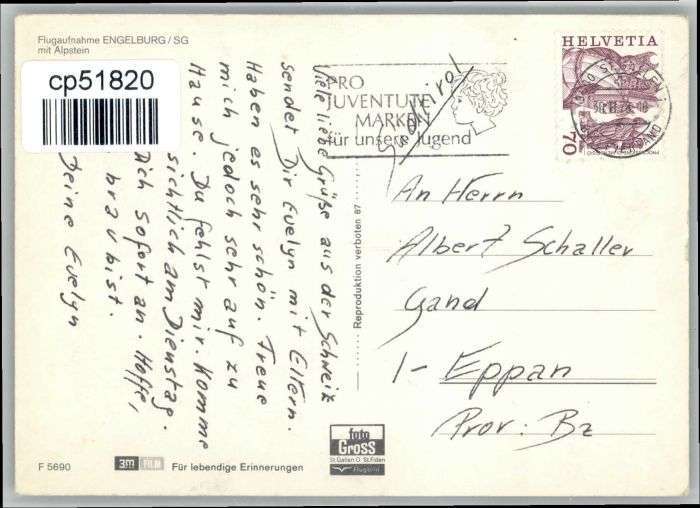 Flugaufnahme ENGELBURG / SG
mit Alpstein
cp51820
Viele liebe Grüße aus der Schweiz
sendet Dir Evelyn mit Eltern.
Haben es sehr schön. Freue
mich jedoch sehr auf zu
Hause. Du fehlst mir. Komme
sichtlich am Dienstag.
Dich sofort an. Hoffe,
brav bist.
Deine Evelyn
PRO
JUVENTUTE
MARKEN
für unsere Jugend
Südtirol
HELVETIA
70
An Herrn
Albert Schaller
Gand
I- Eppan
Prov: Bz
Reproduktion verboten 87
foto
GROSS
St.Gallen O St.Fiden
Flugbild
F 5690
3m FILM
Für lebendige Erinnerungen